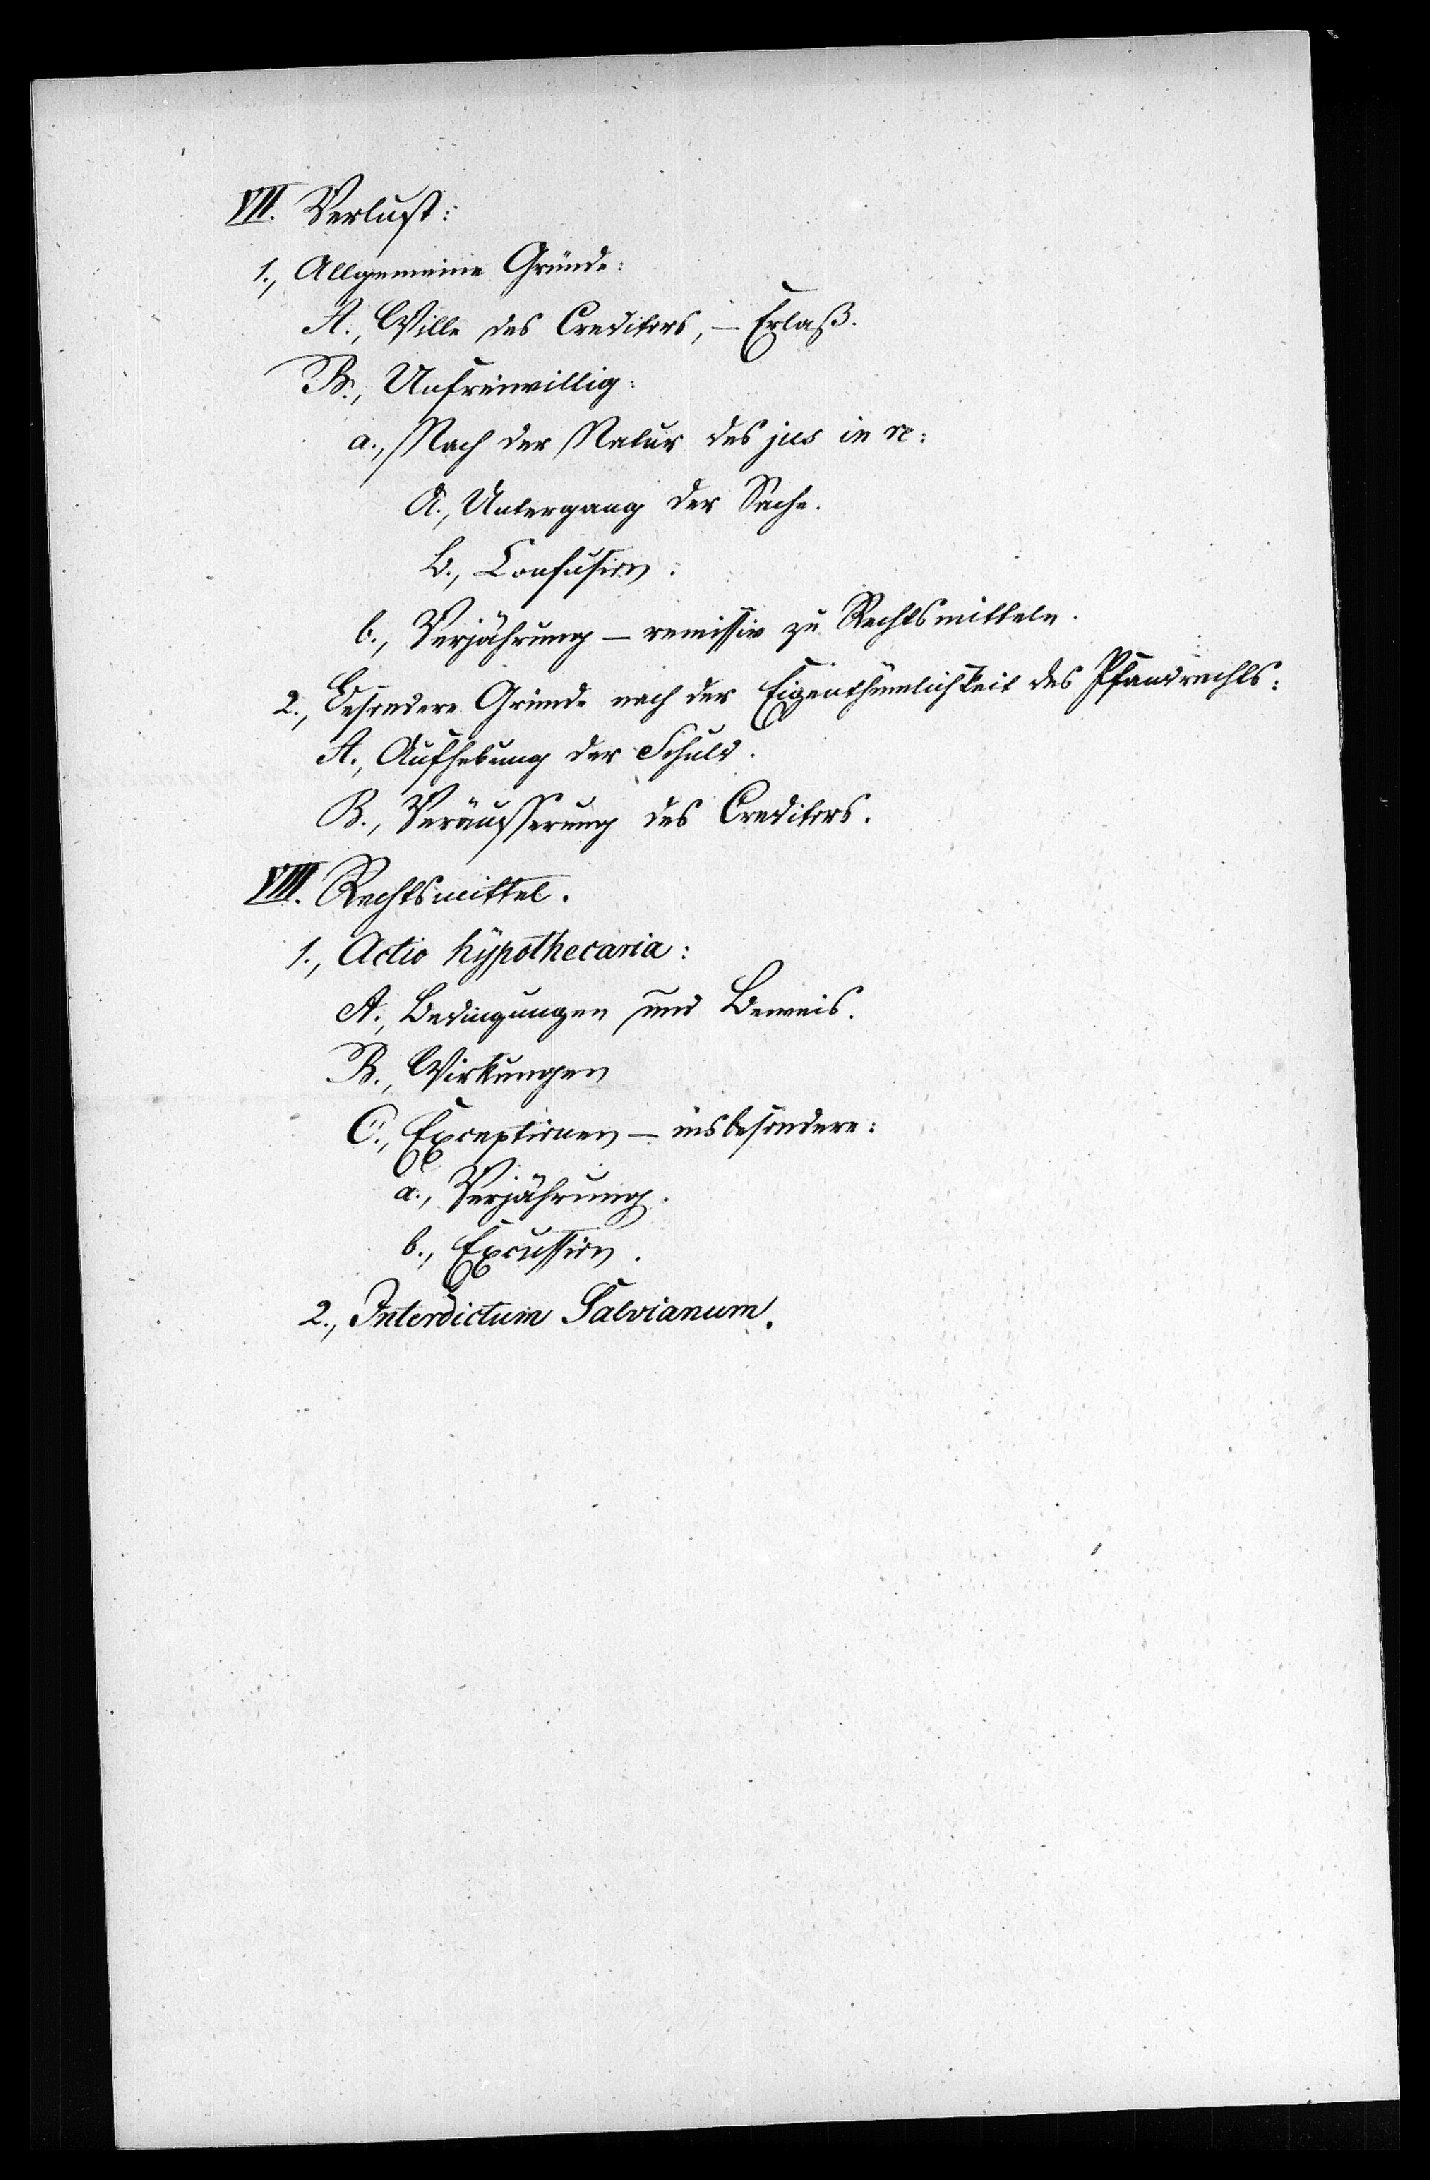 VII. Verlust:
1., Allgemeine Gründe:
A., Wille des Creditors, – Erlaß.
B., Unfreiwillig:
a., Nach der Natur des jus in re:
A., Untergang der Sache.
B., Confusion:
b., Verjährung – remissiv zu Rechtsmitteln.
2., Besondere Gründe nach der Eigenthümlichkeit des Pfandrechts:
A., Aufhebung der Schuld.
B., Veräusserung des Creditors.
VIII. Rechtsmittel.
1., Actio hÿpothecaria:
A., Bedingungen und Beweis.
B., Wirkungen
C., Exceptionen – insbesondere:
a., Verjährung.
b., Excussion.
2., Interdictum Salvianum.